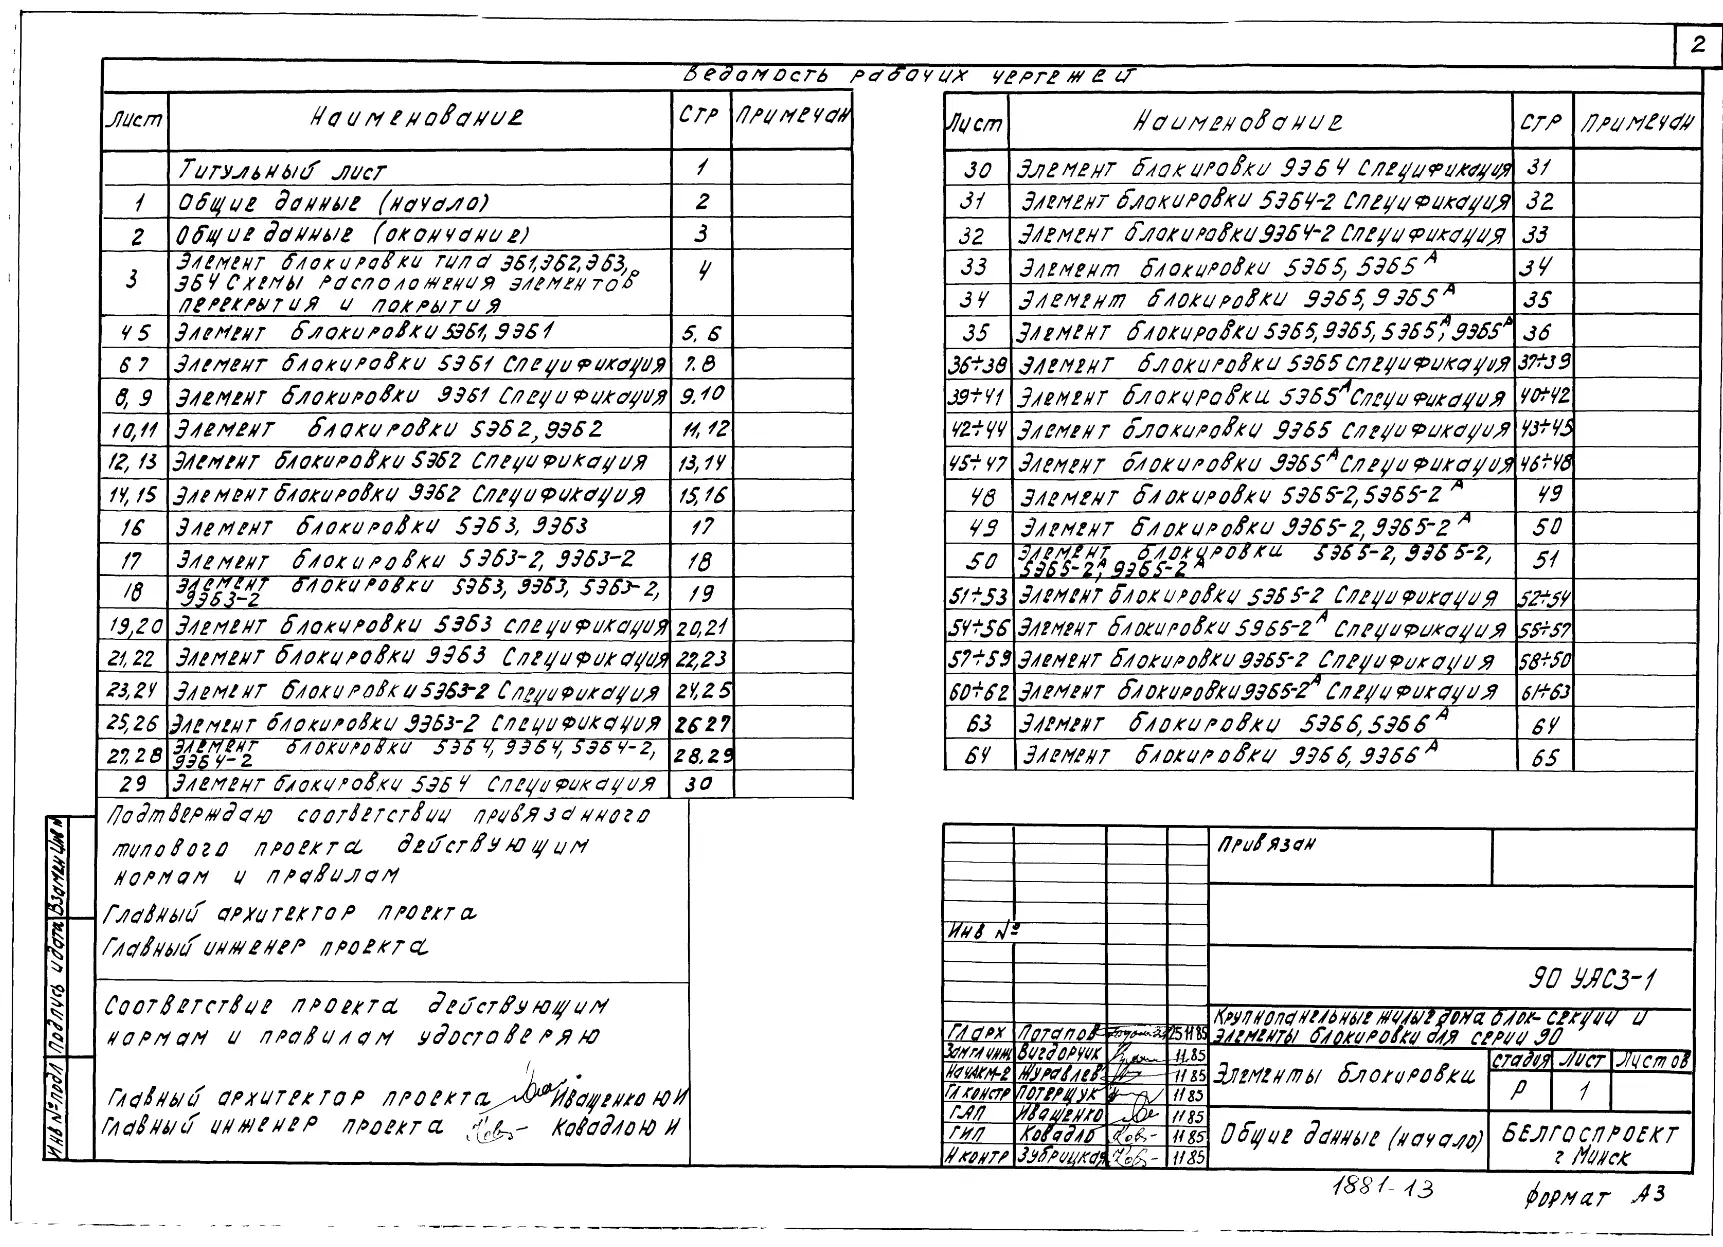 2
Ведомость рабочих чертежей
Лист Наименование Стр Примечан
Титульный лист 1
1 Общие данные (начало) 2
2 Общие данные (окончание) 3
3 Элемент блокировки типа ЭБ1,ЭБ2,ЭБ3, 4
ЭБ4 Схемы расположения элементов
перекрытия и покрытия
4 5 Элемент блокировки 5ЭБ1, 9ЭБ1 5, 6
6 7 Элемент блокировки 5ЭБ1 Спецификация 7.8
8, 9 Элемент блокировки 9ЭБ1 Спецификация 9.10
10,11 Элемент блокировки 5ЭБ2, 9ЭБ2 11, 12
12, 13 Элемент блокировки 5ЭБ2 Спецификация 13,14
14, 15 Элемент блокировки 9ЭБ2 Спецификация 15,16
16 Элемент блокировки 5ЭБ3, 9ЭБ3 17
17 Элемент блокировки 5ЭБ3-2, 9ЭБ3-2 18
18 Элемент блокировки 5ЭБ3, 9ЭБ3, 5ЭБ3-2, 19
9ЭБ3-2
19,20 Элемент блокировки 5ЭБ3 спецификация 20,21
21,22 Элемент блокировки 9ЭБ3 Спецификация 22,23
23,24 Элемент блокировки 5ЭБ3-2 Спецификация 24,25
25,26 Элемент блокировки 9ЭБ3-2 Спецификация 26 27
27,28 Элемент блокировки 5ЭБ4, 9ЭБ4, 5ЭБ4-2, 28,29
9ЭБ4-2
29 Элемент блокировки 5ЭБ4 Спецификация 30
Лист Наименование Стр Примечан
30 Элемент блокировки 9ЭБ4 Спецификация 31
31 Элемент блокировки 5ЭБ4-2 Спецификация 32
32 Элемент блокировки 9ЭБ4-2 Спецификация 33
33 Элемент блокировки 5ЭБ5, 5ЭБ5А 34
34 Элемент блокировки 9ЭБ5, 9ЭБ5А 35
35 Элемент блокировки 5ЭБ5, 9ЭБ5, 5ЭБ5А, 9ЭБ5А 36
36÷38 Элемент блокировки 5ЭБ5 спецификация 37÷39
39÷41 Элемент блокировки 5ЭБ5А Спецификация 40÷42
42÷44 Элемент блокировки 9ЭБ5 Спецификация 43÷45
45÷47 Элемент блокировки 9ЭБ5А Спецификация 46÷48
48 Элемент блокировки 5ЭБ5-2, 5ЭБ5-2А 49
49 Элемент блокировки 9ЭБ5-2, 9ЭБ5-2А 50
50 Элемент блокировки 5ЭБ5-2, 9ЭБ5-2, 51
5ЭБ5-2А, 9ЭБ5-2А
51÷53 Элемент блокировки 5ЭБ5-2 Спецификация 52÷54
54÷56 Элемент блокировки 5ЭБ5-2А Спецификация 55÷57
57÷59 Элемент блокировки 9ЭБ5-2 Спецификация 58÷50
60÷62 Элемент блокировки 9ЭБ5-2А Спецификация 61÷63
63 Элемент блокировки 5ЭБ6, 5ЭБ6А 64
64 Элемент блокировки 9ЭБ6, 9ЭБ6А 65
Подтверждаю соответствии привязанного
типового проекта действующим
нормам и правилам
Главный архитектор проекта
Главный инженер проекта
Соответствие проекта действующим
нормам и правилам удостоверяю
Главный архитектор проекта Иващенко Ю И
Главный инженер проекта Ковадло Ю И
Инв № подл Подпись и дата Взамен Инв №
Привязан
Инв №
90 УЯСЗ-1
Крупнопанельные жилые дома блок-секции и
элементы блокировки для серии 90
Гл арх Потапов 25 11 85
Зам гл инж Вигдорчик 11.85
Нач АКМ-2 Журавлев 11 85
Гл констр Потерщук 11 85
ГАП Иващенко 11 85
ГИП Ковадло 11 85
Н контр Зубрицкая 11 85
Элементы блокировки
Стадия Лист Листов
Р 1
Общие данные (начало)
БЕЛГОСПРОЕКТ
г Минск
1881-13
формат А3